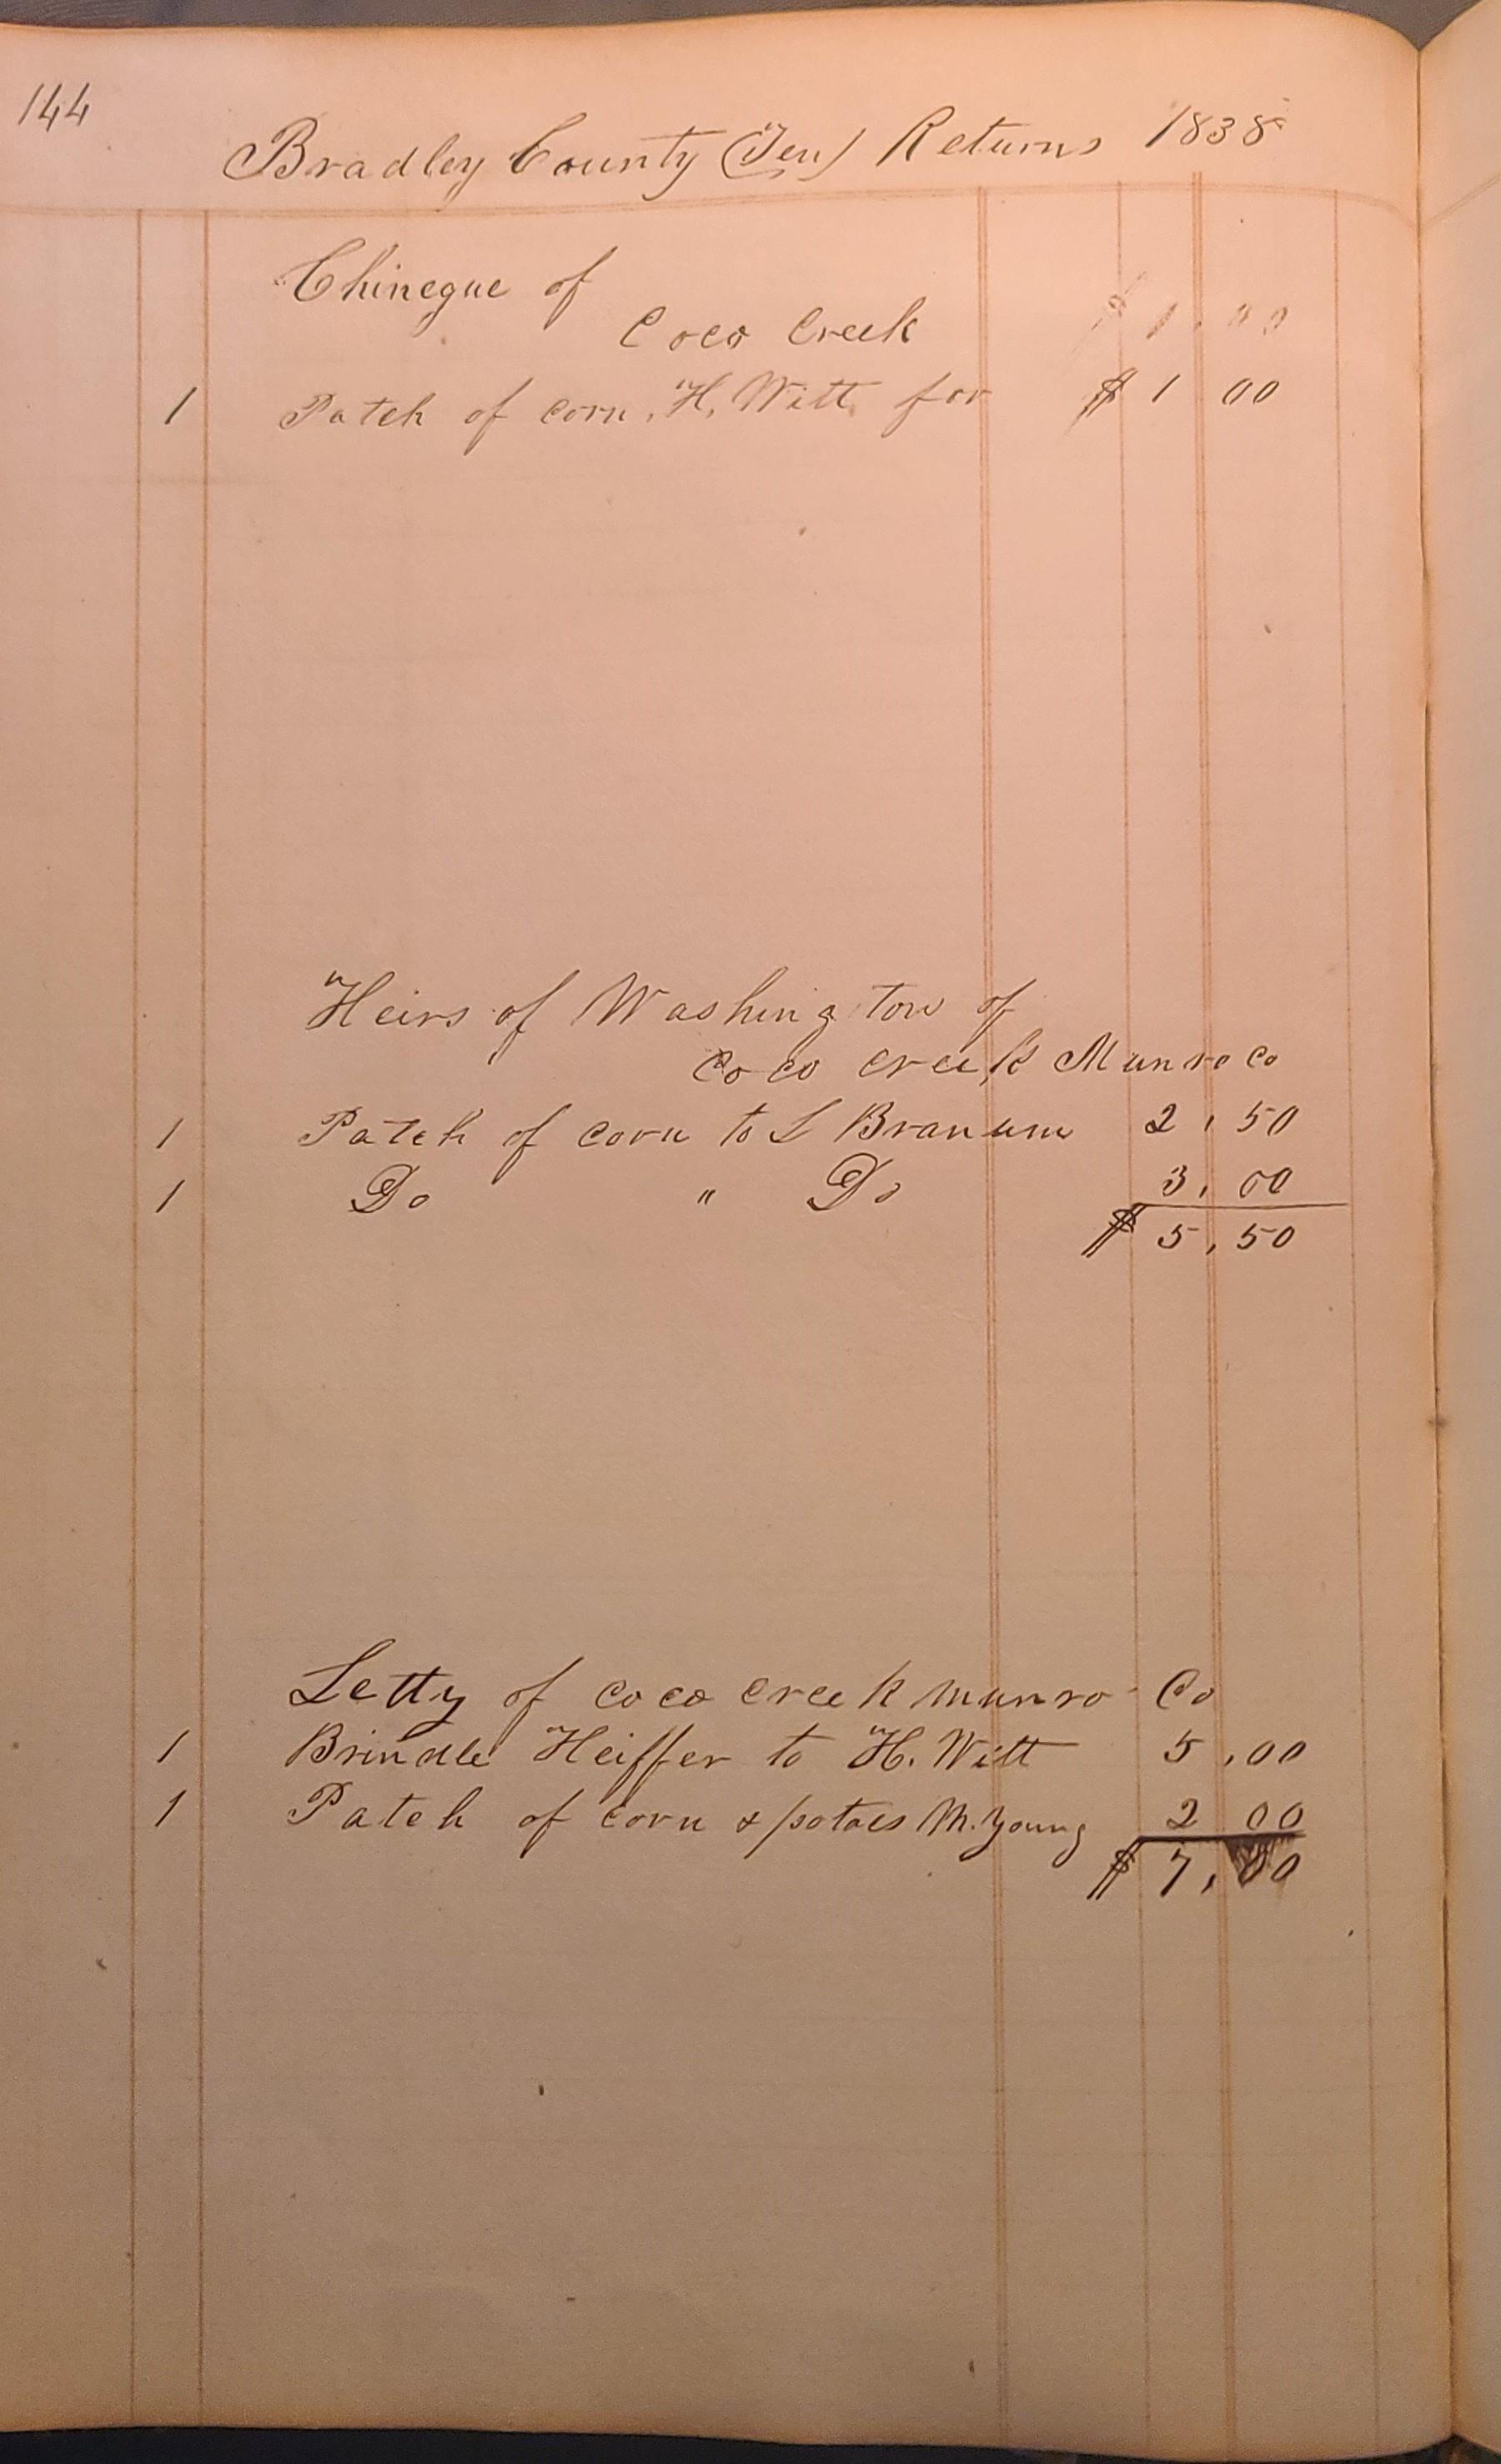 144
Bradley County (Ten) Returns 1838
Chinegue of
Coco Creek $ 1.00
1 Patch of corn, H. Witt for $ 1 00
Heirs of Washington of
Coco creek Munro Co
1 Patch of corn to L Branum 2,50
1 Do " Do 3,00
$ 5,50
Letty of Coco creek munro Co
1 Brindle Heiffer to H. Witt 5,00
1 Patch of corn & potaes M. Young 2 00
$ 7,00